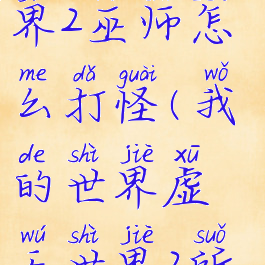 界2巫师怎
me dǎ guài wǒ
么打怪(我
de shì jiè xū
的世界虚
wú shì jiè suǒ
无世界2所